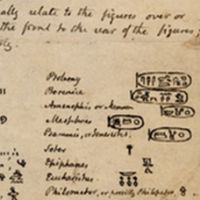 ally relate to the figures over or
the front to the rear of the figures;
Ptolemy
Berenice
Amenophis or Memnon
Mesphres
Ramesis, or Sesostris.
Soter
Epiphanes
Eucharistus
Philometor, or possibly Philopator.